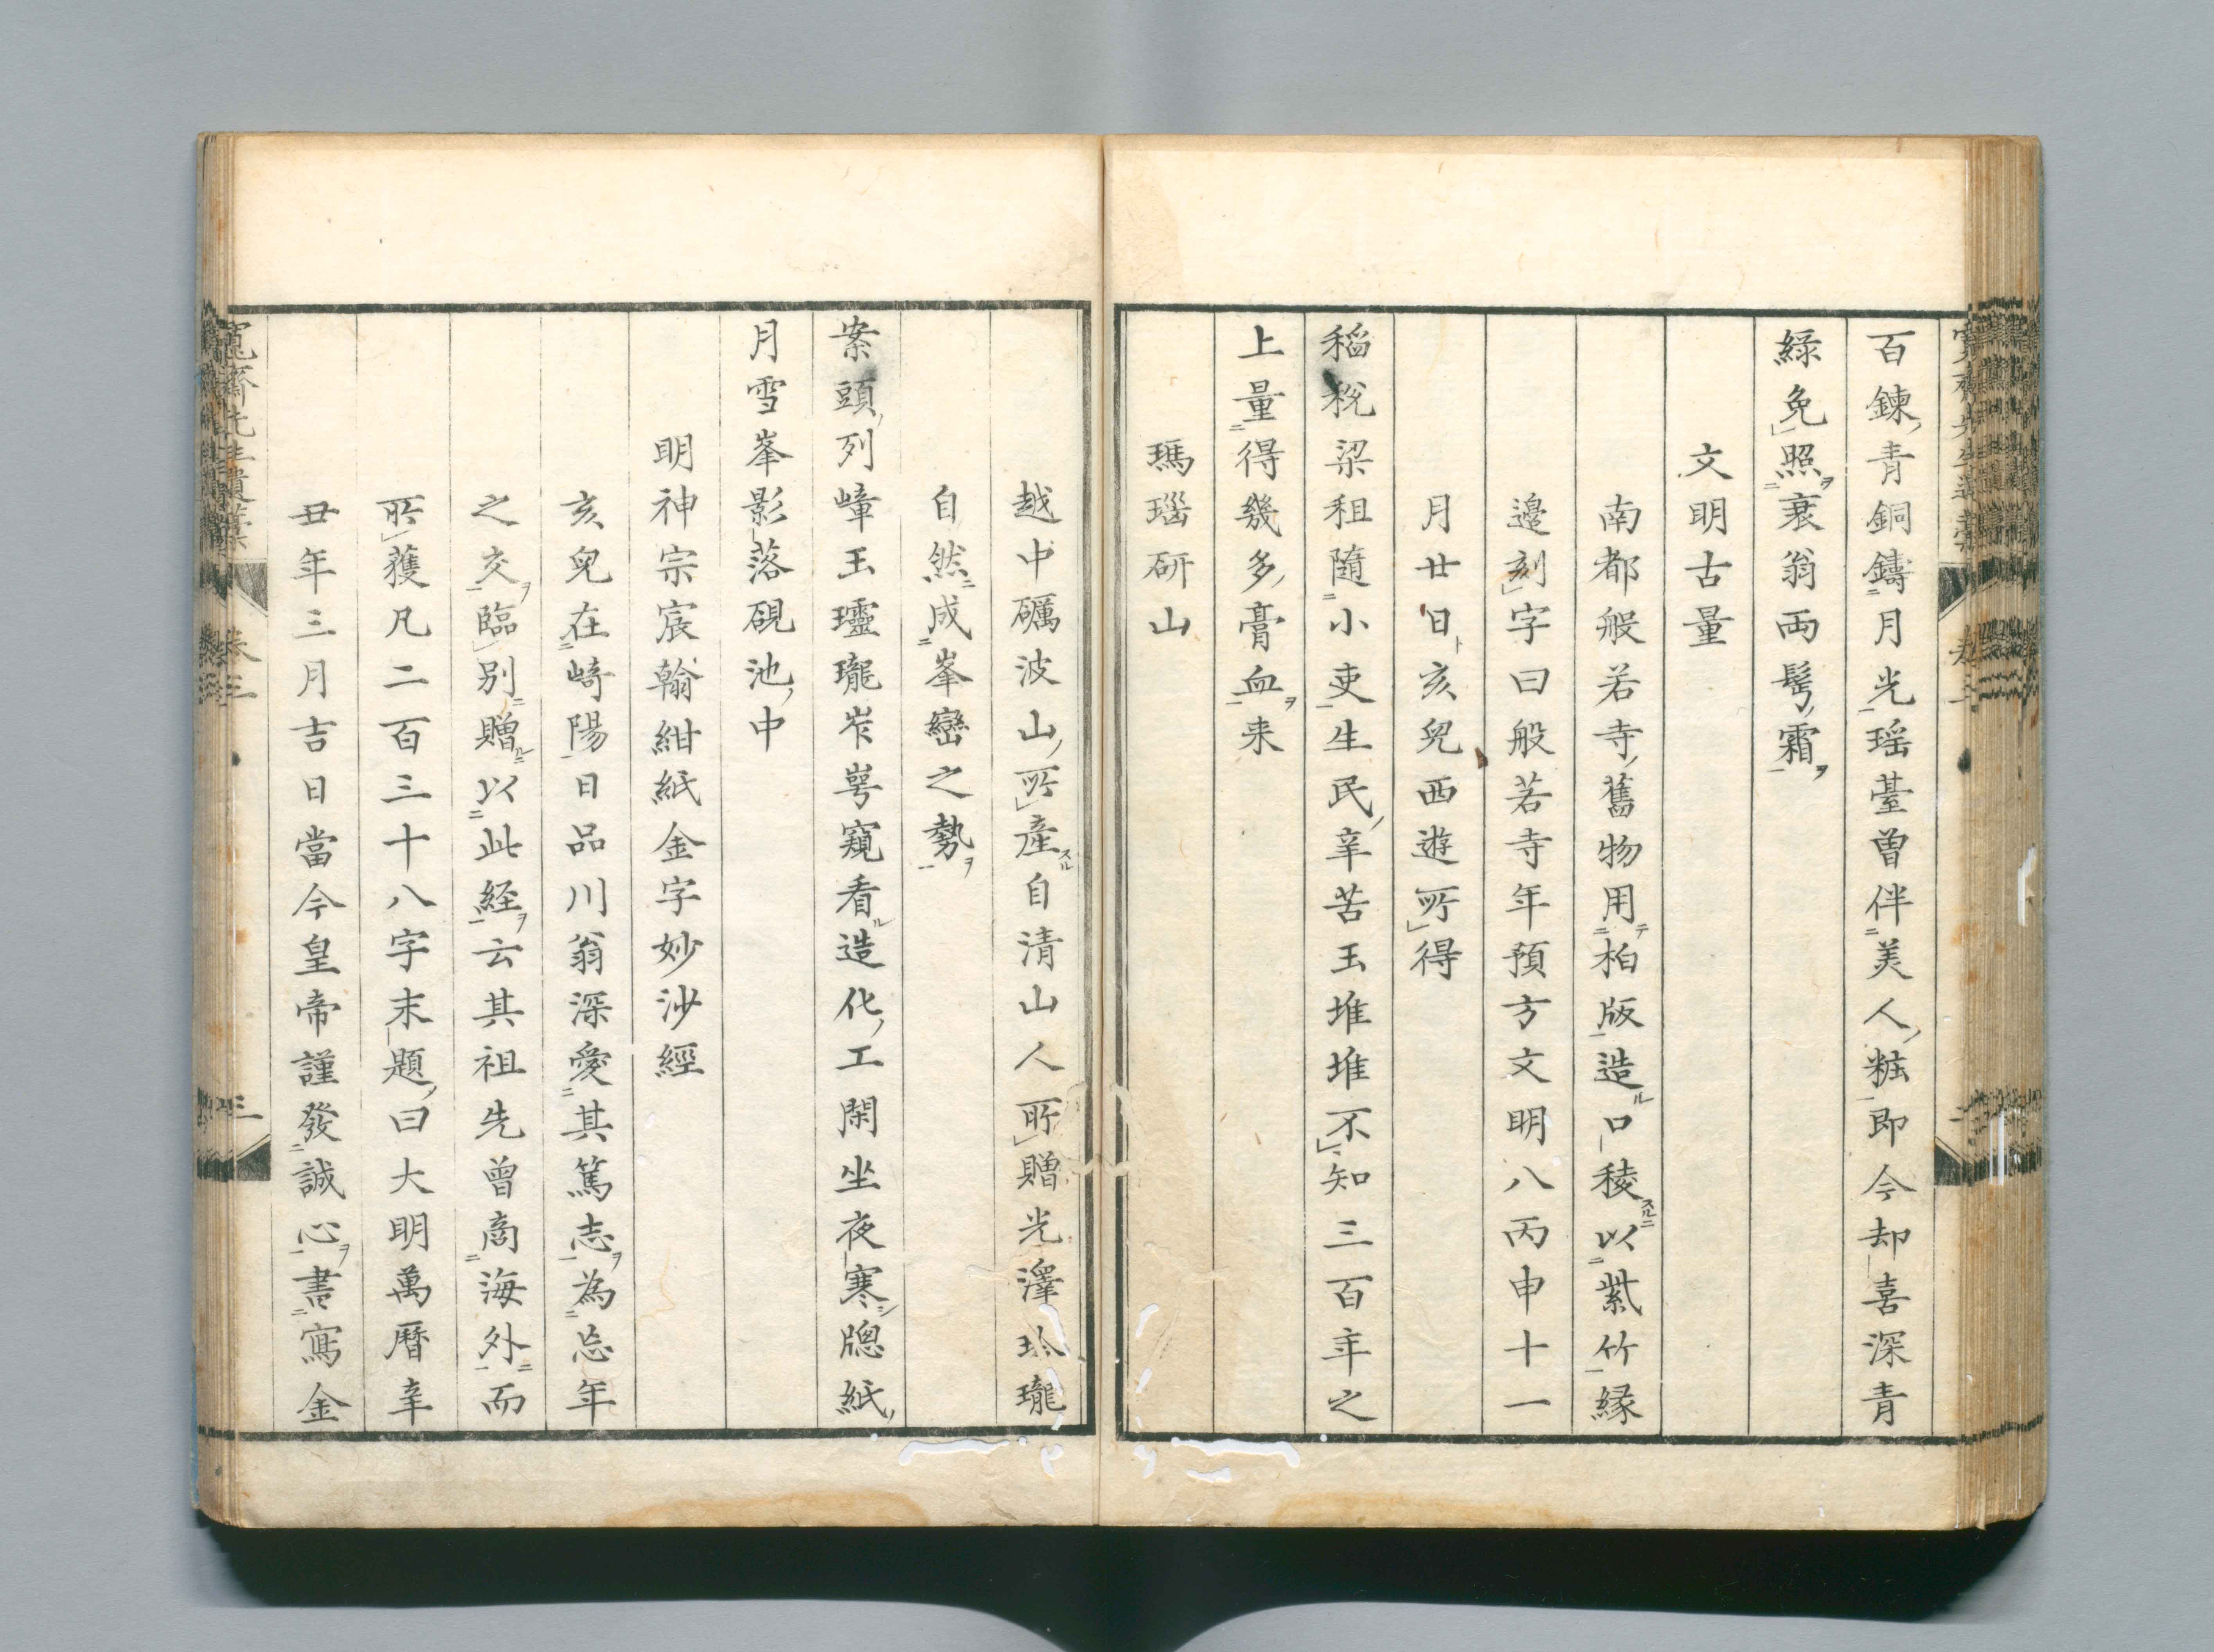 百鍊青銅鑄月光瑶臺曽伴美人粧即今却喜深青
緑免照衰翁両鬂霜
文明古量
南都般若寺舊物用柏版造口稜以紫竹縁
邉刻字曰般若寺年預方文明八丙申十一
月廿日亥兒西遊所得
稲税梁租隨小吏生民辛苦玉堆堆不知三百年之
上量得幾多膏血来
瑪瑙研山
越中礪波山所産自清山人所贈光澤玲瓏
自然成峯巒之勢
案頭列嶂玉瓏瓏岝崿窺看造化工閑坐夜寒牎紙
月雪峯影落硯池中
明神宗宸翰紺紙金字妙沙經
亥兒在﨑陽日品川翁深愛其篤志為忘年
之交臨別贈以此経云其祖先曽商海外而
所獲凡二百三十八字末題曰大明萬曆辛
丑年三月吉日當今皇帝謹發誠心書寫金
寬齋先生遺藁 卷三 三